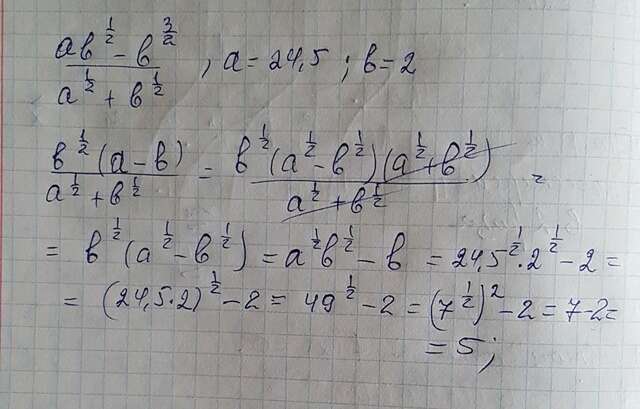 (ab^{1/2} - b^{3/2}) / (a^{1/2} + b^{1/2}) , a = 24,5 ; b = 2
(b^{1/2} (a - b)) / (a^{1/2} + b^{1/2}) = (b^{1/2} (a^{1/2} - b^{1/2}) (a^{1/2} + b^{1/2})) / (a^{1/2} + b^{1/2}) =
= b^{1/2} (a^{1/2} - b^{1/2}) = a^{1/2} b^{1/2} - b = 24,5^{1/2} · 2^{1/2} - 2 =
= (24,5 · 2)^{1/2} - 2 = 49^{1/2} - 2 = (7^{1/2})^2 - 2 = 7 - 2 =
= 5;